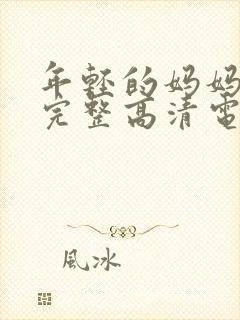 年輕的妈妈
完整高清電
風冰